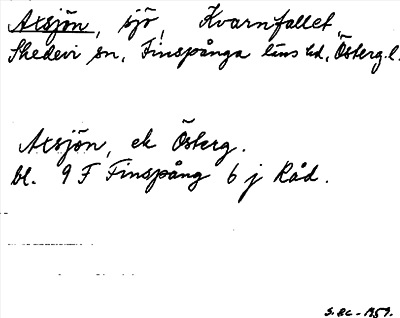 Axsjön, sjö, Kvarnfallet,
Skedevi sn, Finspånga läns hd, Österg. l.
Axsjön, ek Österg.
bl. 9 F Finspång 6 j Råd.
S. Ec - 1959.